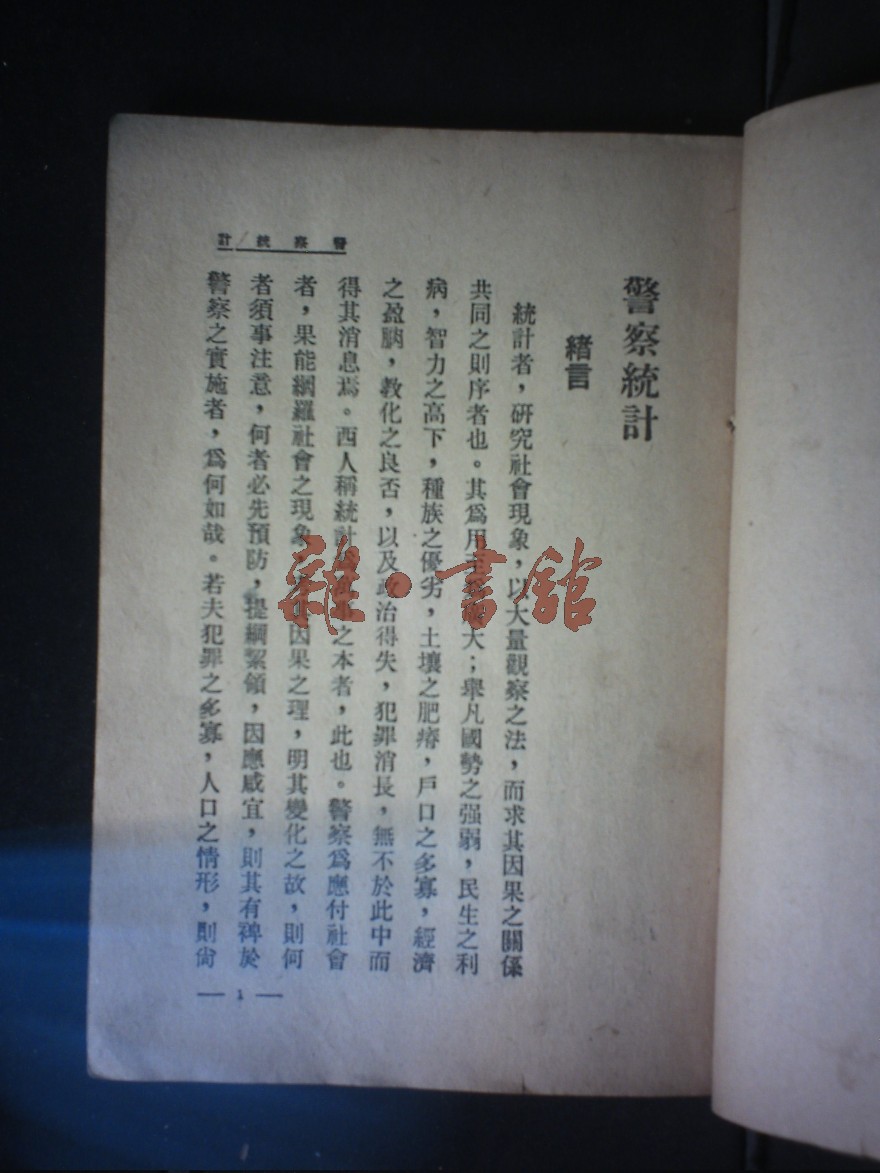 計統察警
警察統計
緒言
統計者，研究社會現象，以大量觀察之法，而求其因果之關係
共同之則序者也。其爲用大；舉凡國勢之强弱，民生之利
病，智力之高下，種族之優劣，土壤之肥瘠，戶口之多寡，經濟
之盈朒，教化之良否，以及政治得失，犯罪消長，無不於此中而
得其消息焉。西人稱統計之本者，此也。警察爲應付社會
者，果能網羅社會之現象，因果之理，明其變化之故，則何
者須事注意，何者必先預防，提綱絜領，因應咸宜，則其有裨於
警察之實施者，爲何如哉。若夫犯罪之多寡，人口之情形，則尙
— 1 —
雜·書館